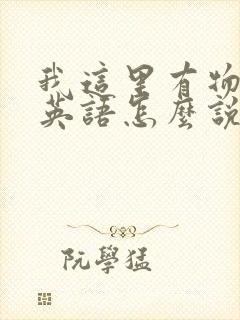 我這里有物
英語怎麼說
阮學猛